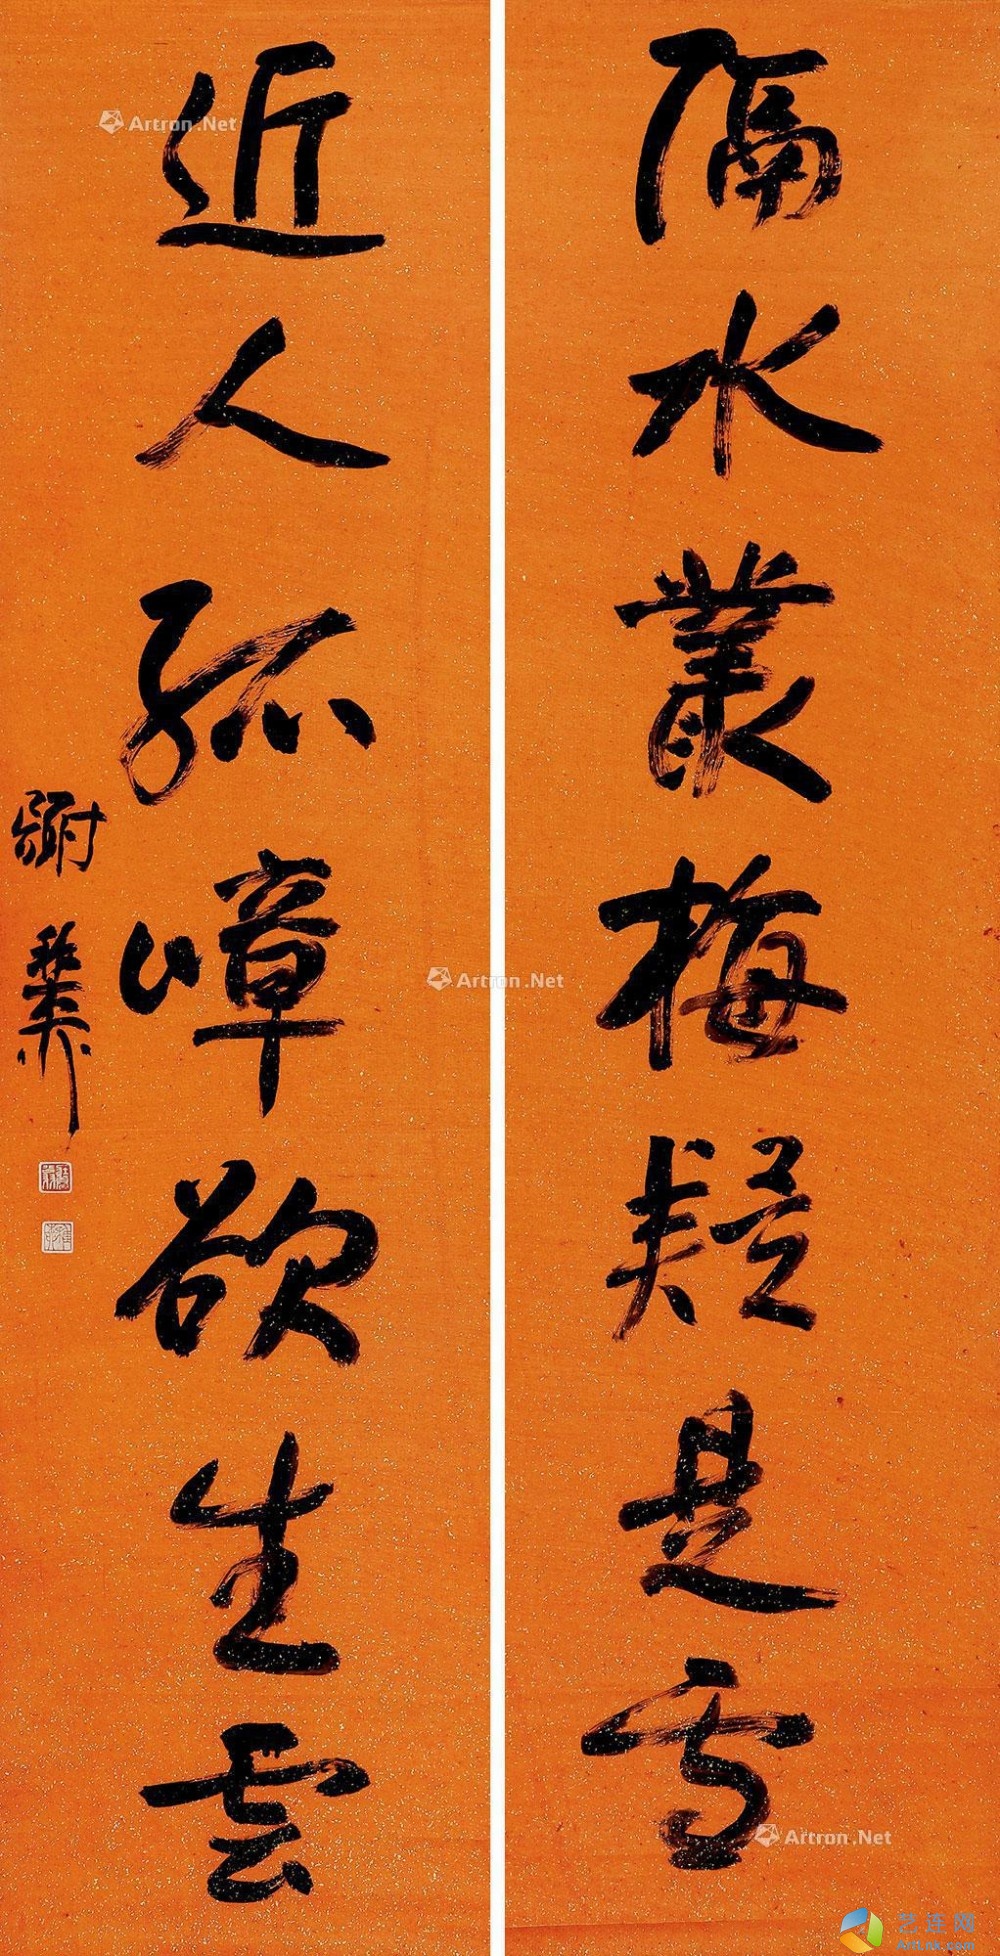 隔水叢梅疑是雪
近人孤嶂欲生雲
Artron.Net
Artron.Net
Artron.Net
艺连网